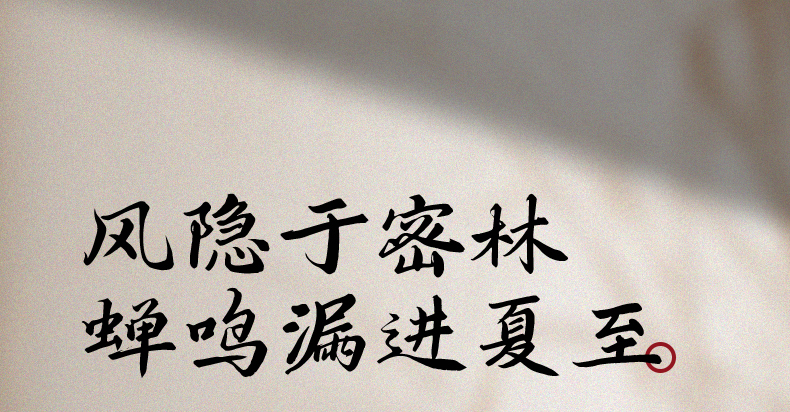 风隐于密林
蝉鸣漏进夏至。